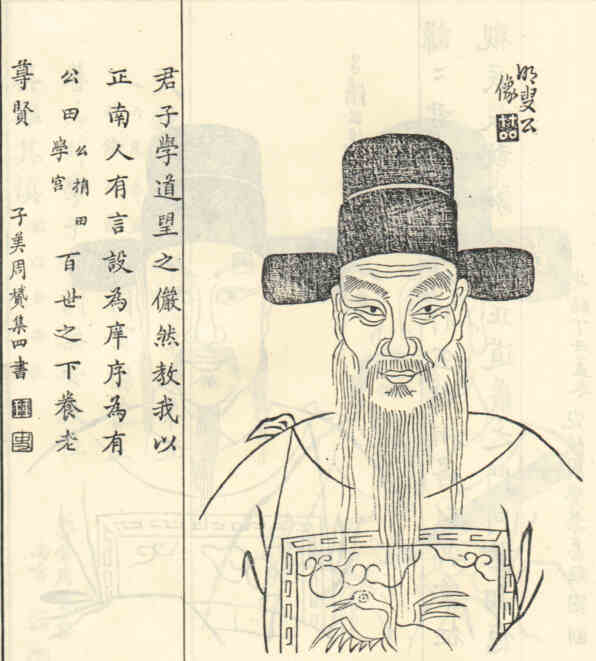 明叟公
像
君子學道望之儼然教我以
正南人有言設為庠序為有
公田公捐田學宮百世之下養老
尊賢 子美周贊集四書